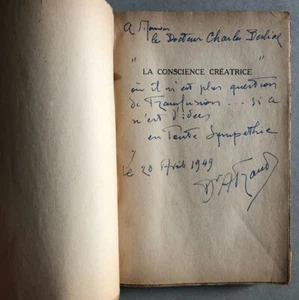 A Monsieur
le Docteur Charles
"
LA CONSCIENCE CRÉATRICE "
où il n'est plus question
de Transfusion... si ce
n'est d'idées
en toute Sympathie
Le 20 Avril 1949
Dr A